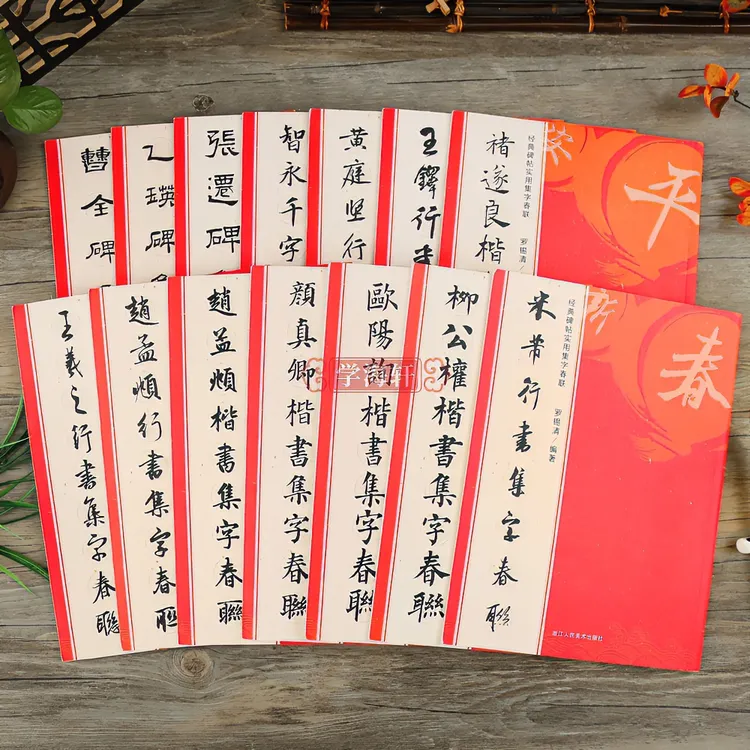 曹全碑
乙瑛碑
張遷碑
智永千字
黄庭坚行
王鐸行
褚遂良楷
经典碑帖实用集字春联
罗锡清
平
王羲之行書集字春聯
趙孟頫行書集字春聯
趙孟頫楷書集字春聯
顔真卿楷書集字春聯
歐陽詢楷書集字春聯
柳公權楷書集字春聯
米芾行書集字春聯
经典碑帖实用集字春联
罗锡清/编著
春
浙江人民美术出版社
学海轩